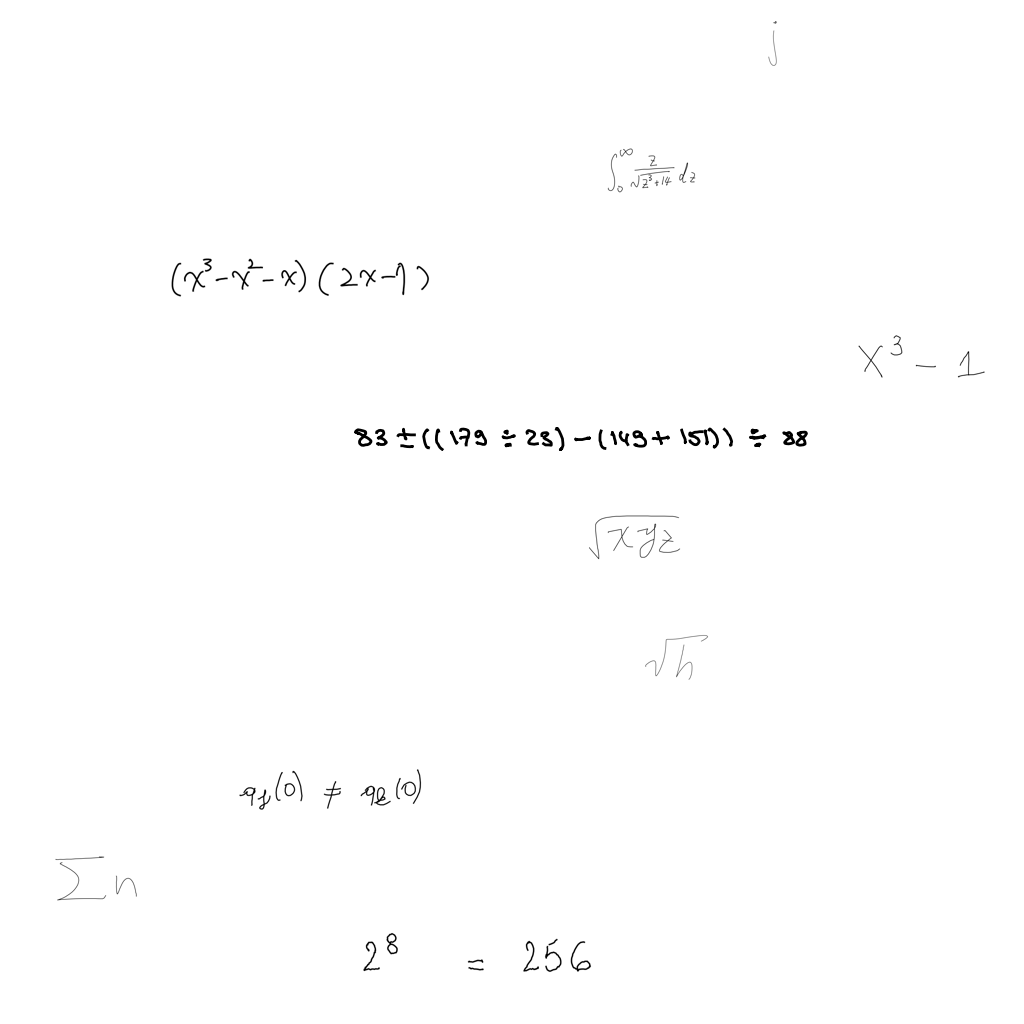 j
\int_0^\infty \frac{z}{\sqrt{z^3+14}} dz
(x^3-x^2-x)(2x-1)
x^3-1
83±((179÷23)-(149+151))÷88
\sqrt{xyz}
\sqrt{h}
q_f(0) ≠ q_k(0)
\sum n
2^8 = 256